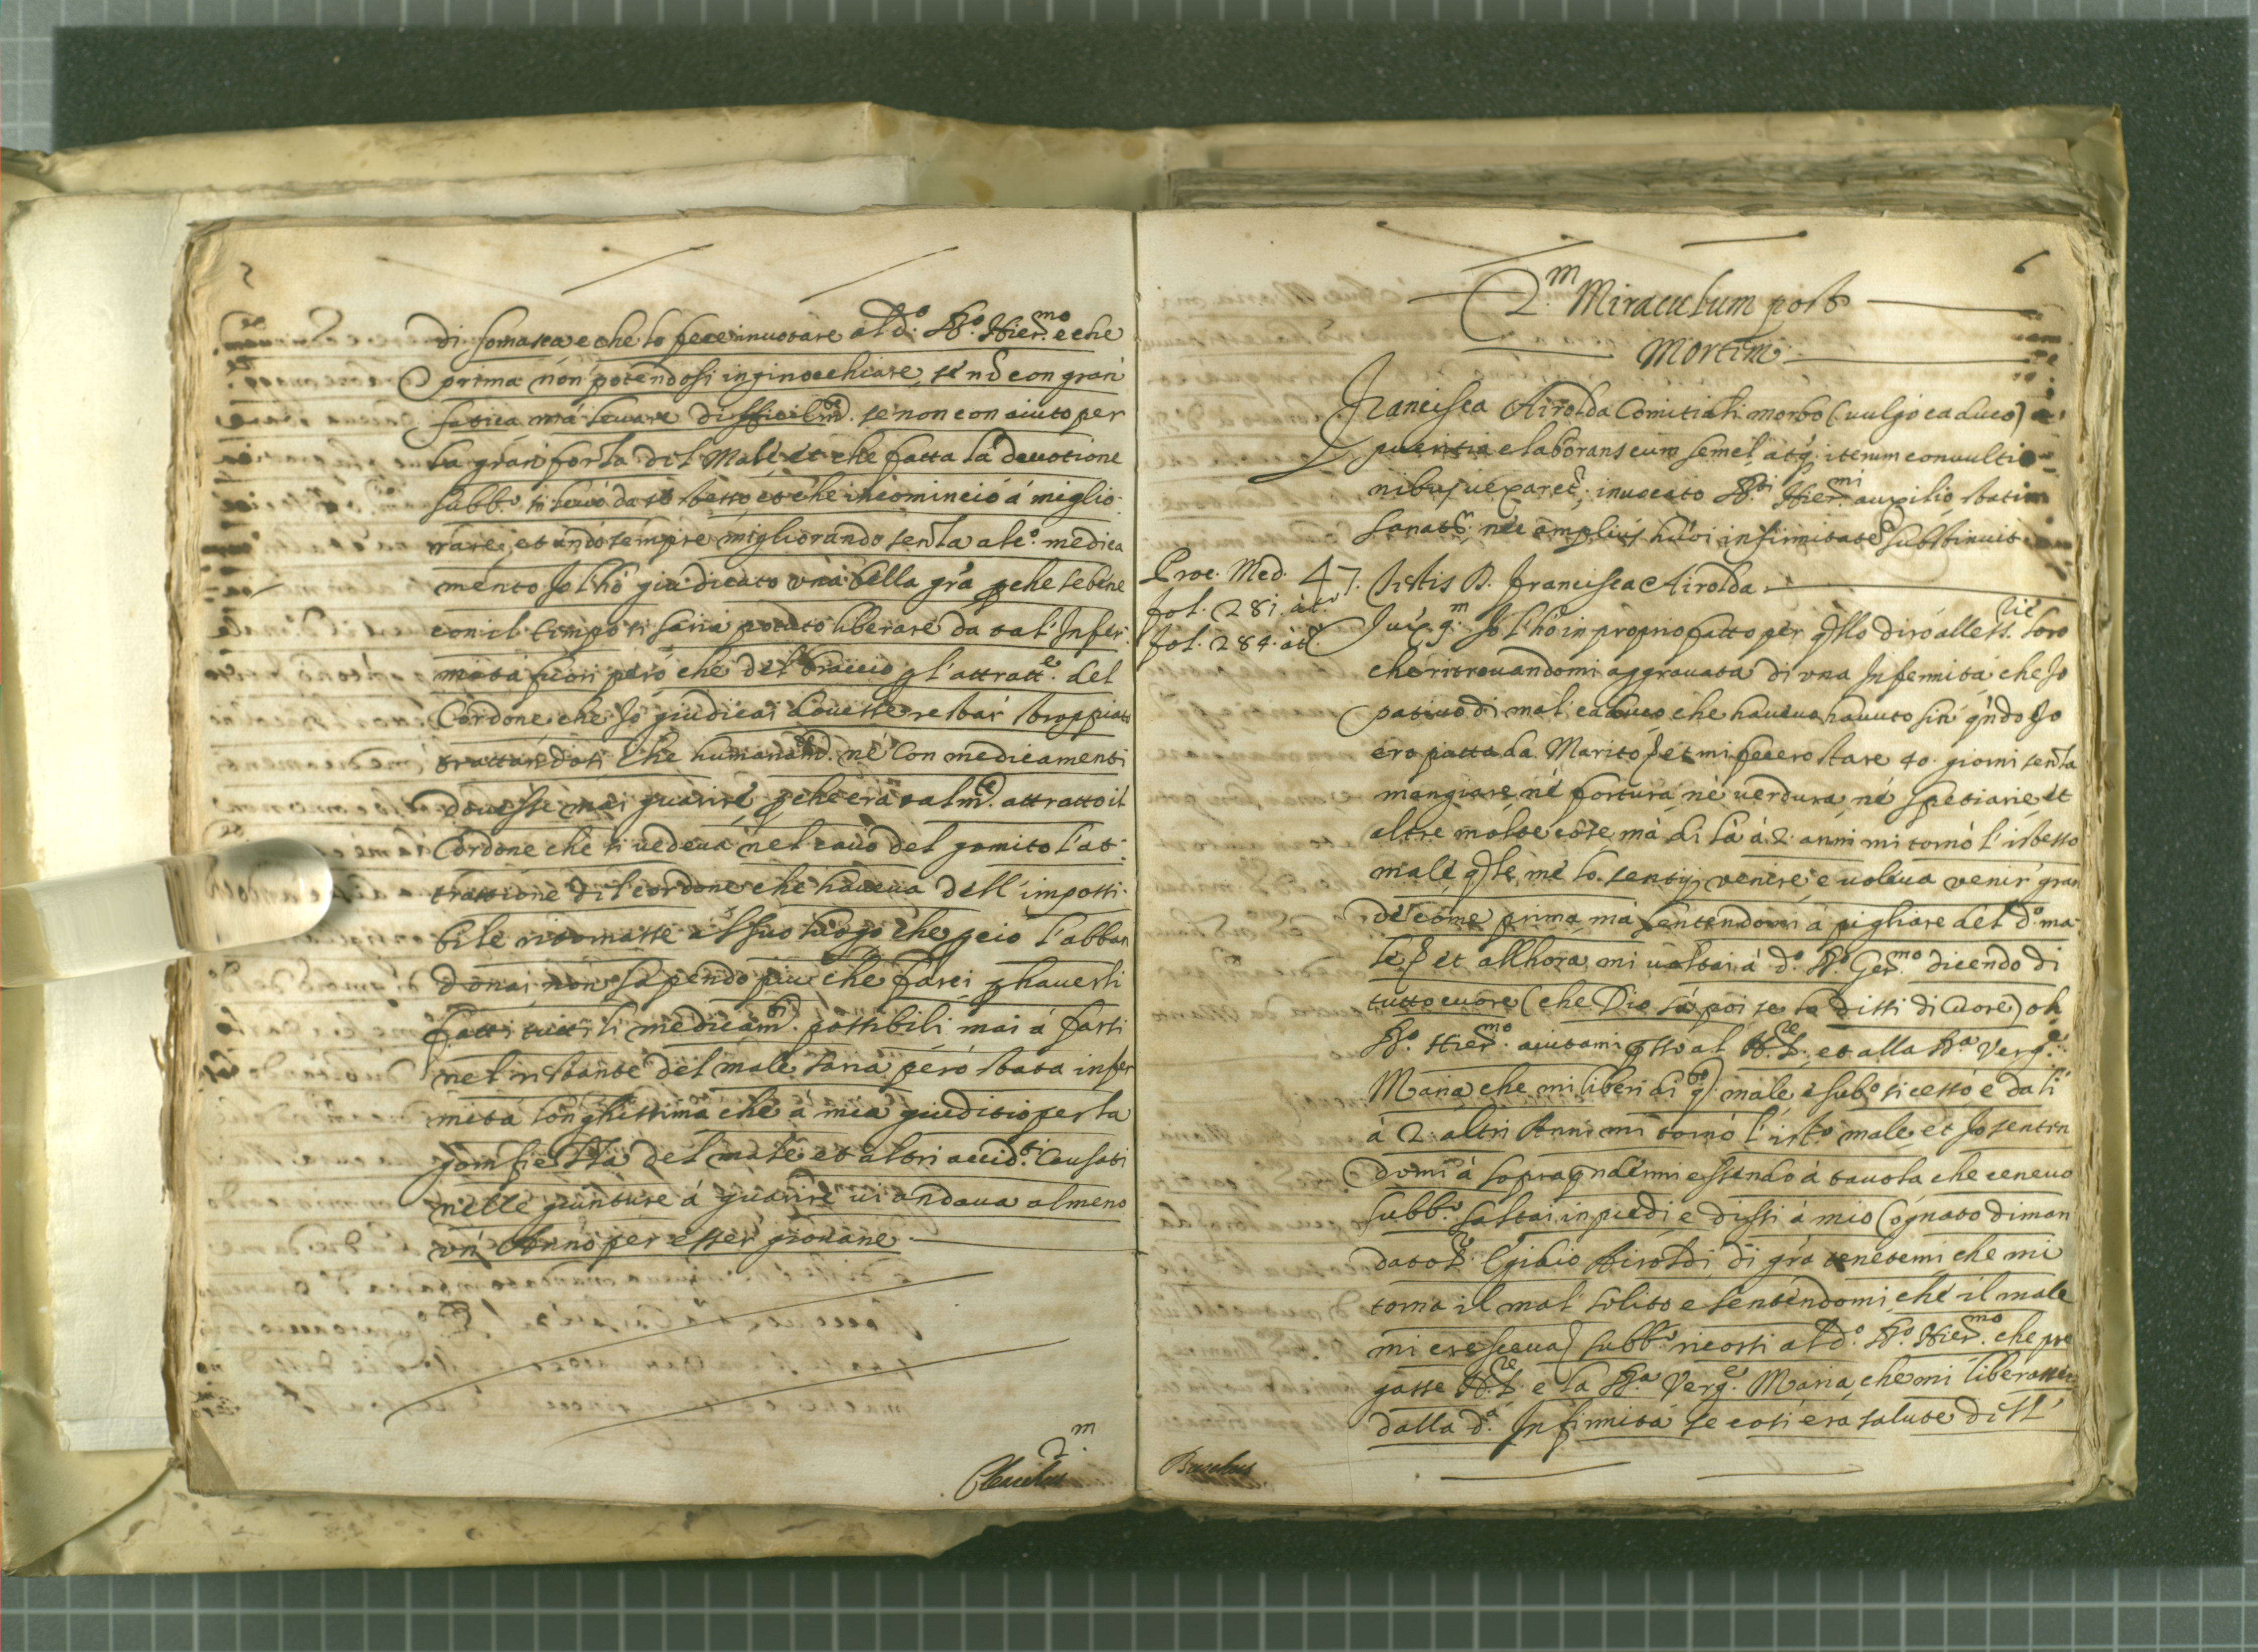 5
di Somasca e che lo fece inuotare al d.º B.º Hier.mo e che
prima non potendosi inginocchiare, se nó con gran
fatica má leuare difficilm.te se non con aiuto per
la gran forza del Male et che fatta la deuotione
subb.º si leuò da se stesso et che incominciò á miglio-
rare, et andò sempre migliorando senza alc.º medica
mento Jo l'hò giudicato vna bella gra pche se bene
con il tempo si saria potuto liberare da tal' Infer-
mità fuori peró che del braccio p l'attratt.e del
Cordone che Jo giudicai douesse restar' stroppiato
trattandosi che humanam.te né con medicamenti
douesse mai guarire pche era talm.te attratto il
Cordone che si uedeua nel cauo del gomito l'at-
trattione del cordone che haueua dell' imposi-
bile ritornasse al suo luogo che pciò l'abban
donai non sapendo piu che farci p hauerli
fatti tutti li medicam.ti possibili mai á farsi
nel instante del male saria peró stata infer
mità longhissima che a mia giuditio per la
gonfiezza del male et altri accid.ti Causati
nelle giunture á guarire ui andaua almeno
vn' Anno per esser giouane
2.m
6
2.m Miraculum post
Mortem
Francisca Airolda Comitiali morbo (uulgo caduco) a
pueritia elaborans cum semel atq. iterum conuultio
nibus uexaret.r inuocato B.ti Hier.mi auxilio statim
sanat.r nec amplius hui.oi infirmitate substinuit
Proc. Med. 47. Testis D. Francisca Airolda
fol. 281. at.º
fol. 284. at.º
Jux. 9.m Jo l'hò in proprio fatto per qllo dirò alle SS.rie loro
che ritrouandomi aggrauata di vna Infermità che Jo
patiuo di mal' caduco che haueuo hauuto sin' qndo Jo
ero putta da Marito, et mi fecero stare 40. giorni senza
mangiare né fortura né uerdura né spetiarie et
altre molte cose má di lá á 2. anni mi tornò l'istesso
male, qle, me lo sentij venire, e uoleua venir' gran
de come prima má sentendomi á pigliare del d.º ma-
le, et allhora mi uoltai á d.º B.º Ger.mo dicendo di
tutto cuore (che Dio sá poi se lo dissi di Cuore) oh
B.º Hier.mo aiutami psso al N.S.re et alla B.a Verg.e
Maria che mi liberi di q.to male, e sub.º si cessó e da li
á 2. altri Anni mi tornò l'ist.º male et Jo senten
domi á soprapndermi essendo á tauola che ceneuo
subb.º saltai in piedi e dissi á mio Cognato diman
dato S.r Egidio Airoldi di gra tenetemi che mi
torna il mal' solito e sentendomi che il male
mi cresceua subb.º ricorsi al d.º B.º Hier.mo che pre
gasse N.S.re e la B.a Verg.e Maria, che mi liberasse
dalla d.a Infirmità se cosi era salute dell'